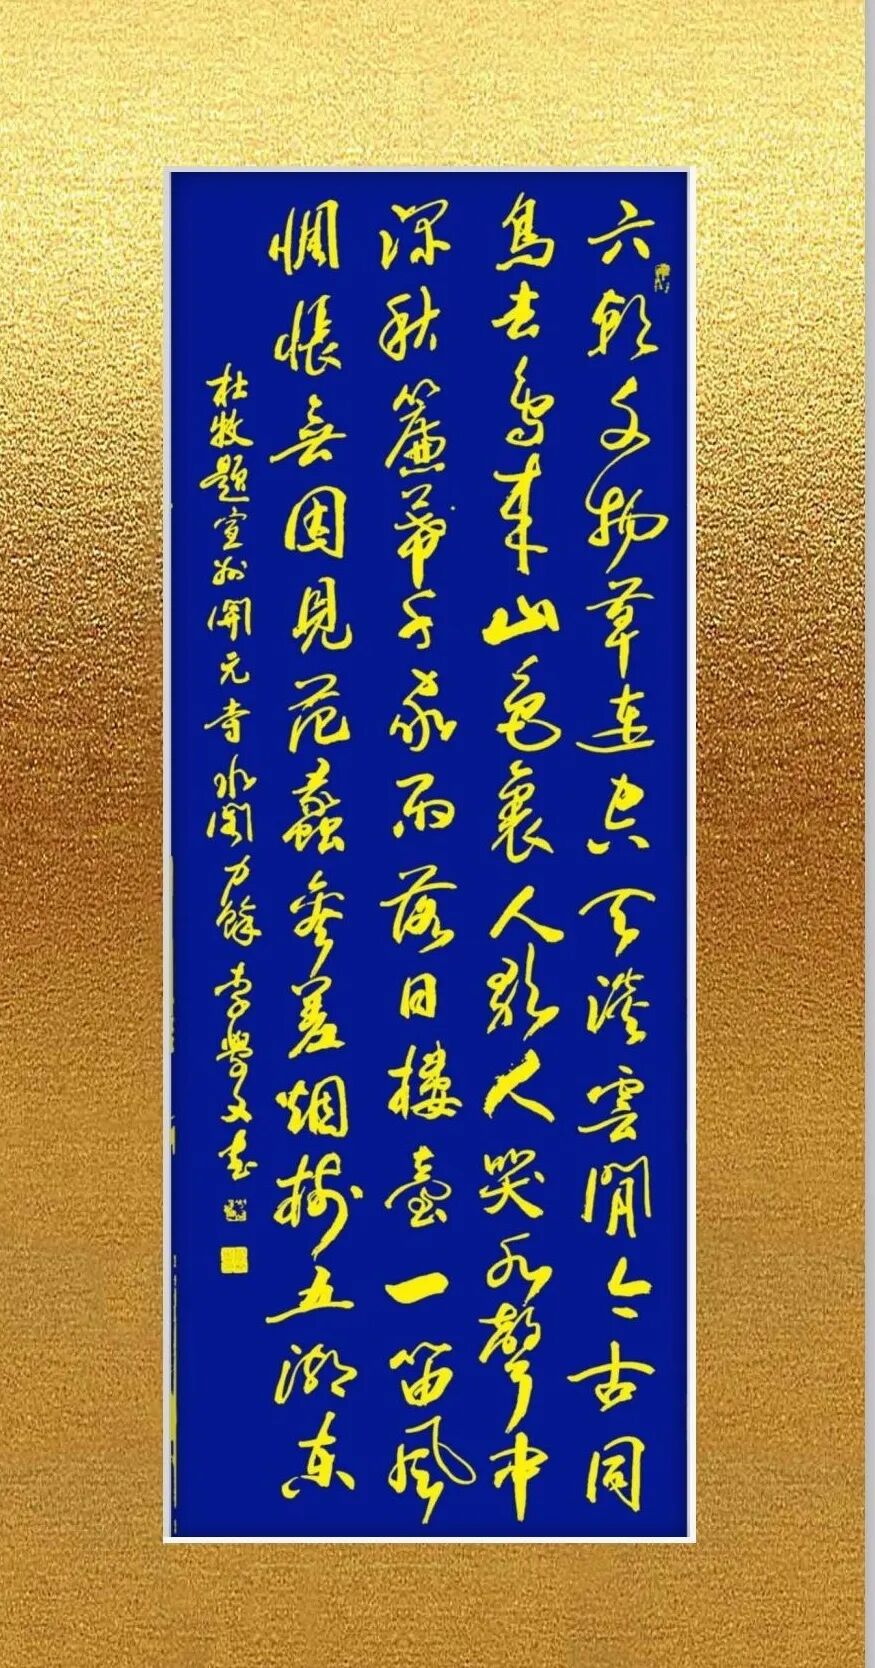 六朝文物草連空天淡雲閒今古同
鳥去鳥來山色裏人歌人哭水聲中
深秋簾幕千家雨落日樓臺一笛風
惆悵無因見范蠡參差烟樹五湖東
杜牧題宣州開元寺水閣力餘李學文書